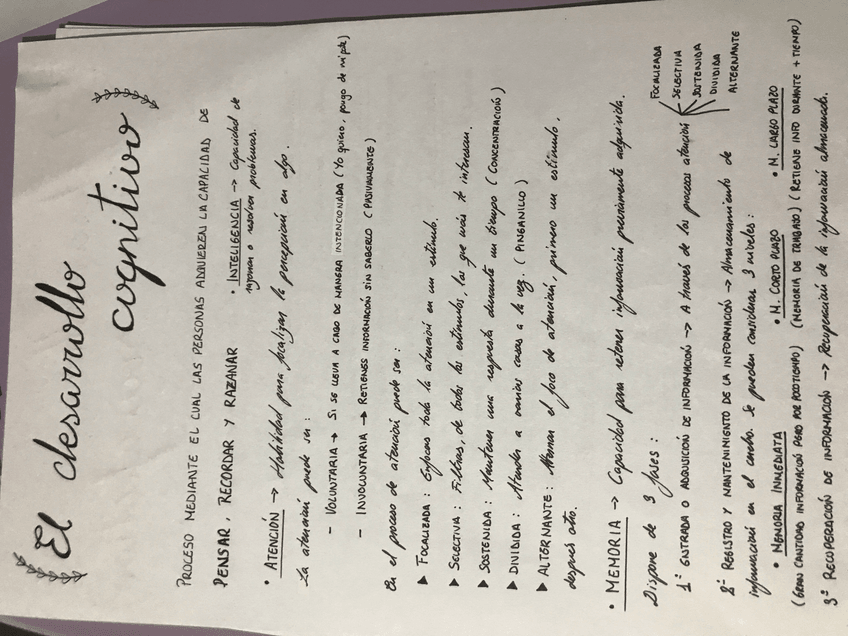 El desarrollo
cognitivo
PROCESO MEDIANTE EL CUAL LAS PERSONAS ADQUIEREN LA CAPACIDAD DE
PENSAR, RECORDAR Y RAZANAR
• INTELIGENCIA → Capacidad de
razonar o resolver problemas.
• ATENCIÓN → Habilidad para focalizar la percepción en algo.
La atención puede ser:
- VOLUNTARIA → SI SE LLEVA A CABO DE MANERA INTENCIONADA (Yo quiero, pongo de mi parte)
- INVOLUNTARIA → RETIENES INFORMACIÓN SIN SABERLO (PASIVAMENTE)
En el proceso de atención puede ser:
▶ FOCALIZADA: Enfocas toda la atención en un estímulo.
▶ SELECTIVA: Filtras, de todos los estímulos, los que más te interesan.
▶ SOSTENIDA: Mantener una respuesta durante un tiempo (CONCENTRACIÓN)
▶ DIVIDIDA: Atender a varias cosas a la vez. (PINGANILLO)
▶ ALTERNANTE: Alternan el foco de atención, primero un estímulo,
después otro.
• MEMORIA → Capacidad para retener información previamente adquirida.
Dispone de 3 fases:
1º ENTRADA O ADQUISICIÓN DE INFORMACIÓN → A través de los procesos atención
FOCALIZADA
SELECTIVA
SOSTENIDA
DIVIDIDA
ALTERNANTE
2º REGISTRO Y MANTENIMIENTO DE LA INFORMACIÓN → Almacenamiento de
información en el cerebro. Se pueden considerar 3 niveles:
• MEMORIA INMEDIATA • M. CORTO PLAZO • M. LARGO PLAZO
(GRAN CANTIDAD INFORMACIÓN PERO POR POCOTIEMPO) (MEMORIA DE TRABAJO) (RETIENE INFO DURANTE + TIEMPO)
3º RECUPERACIÓN DE INFORMACIÓN → Recuperación de la información almacenada.